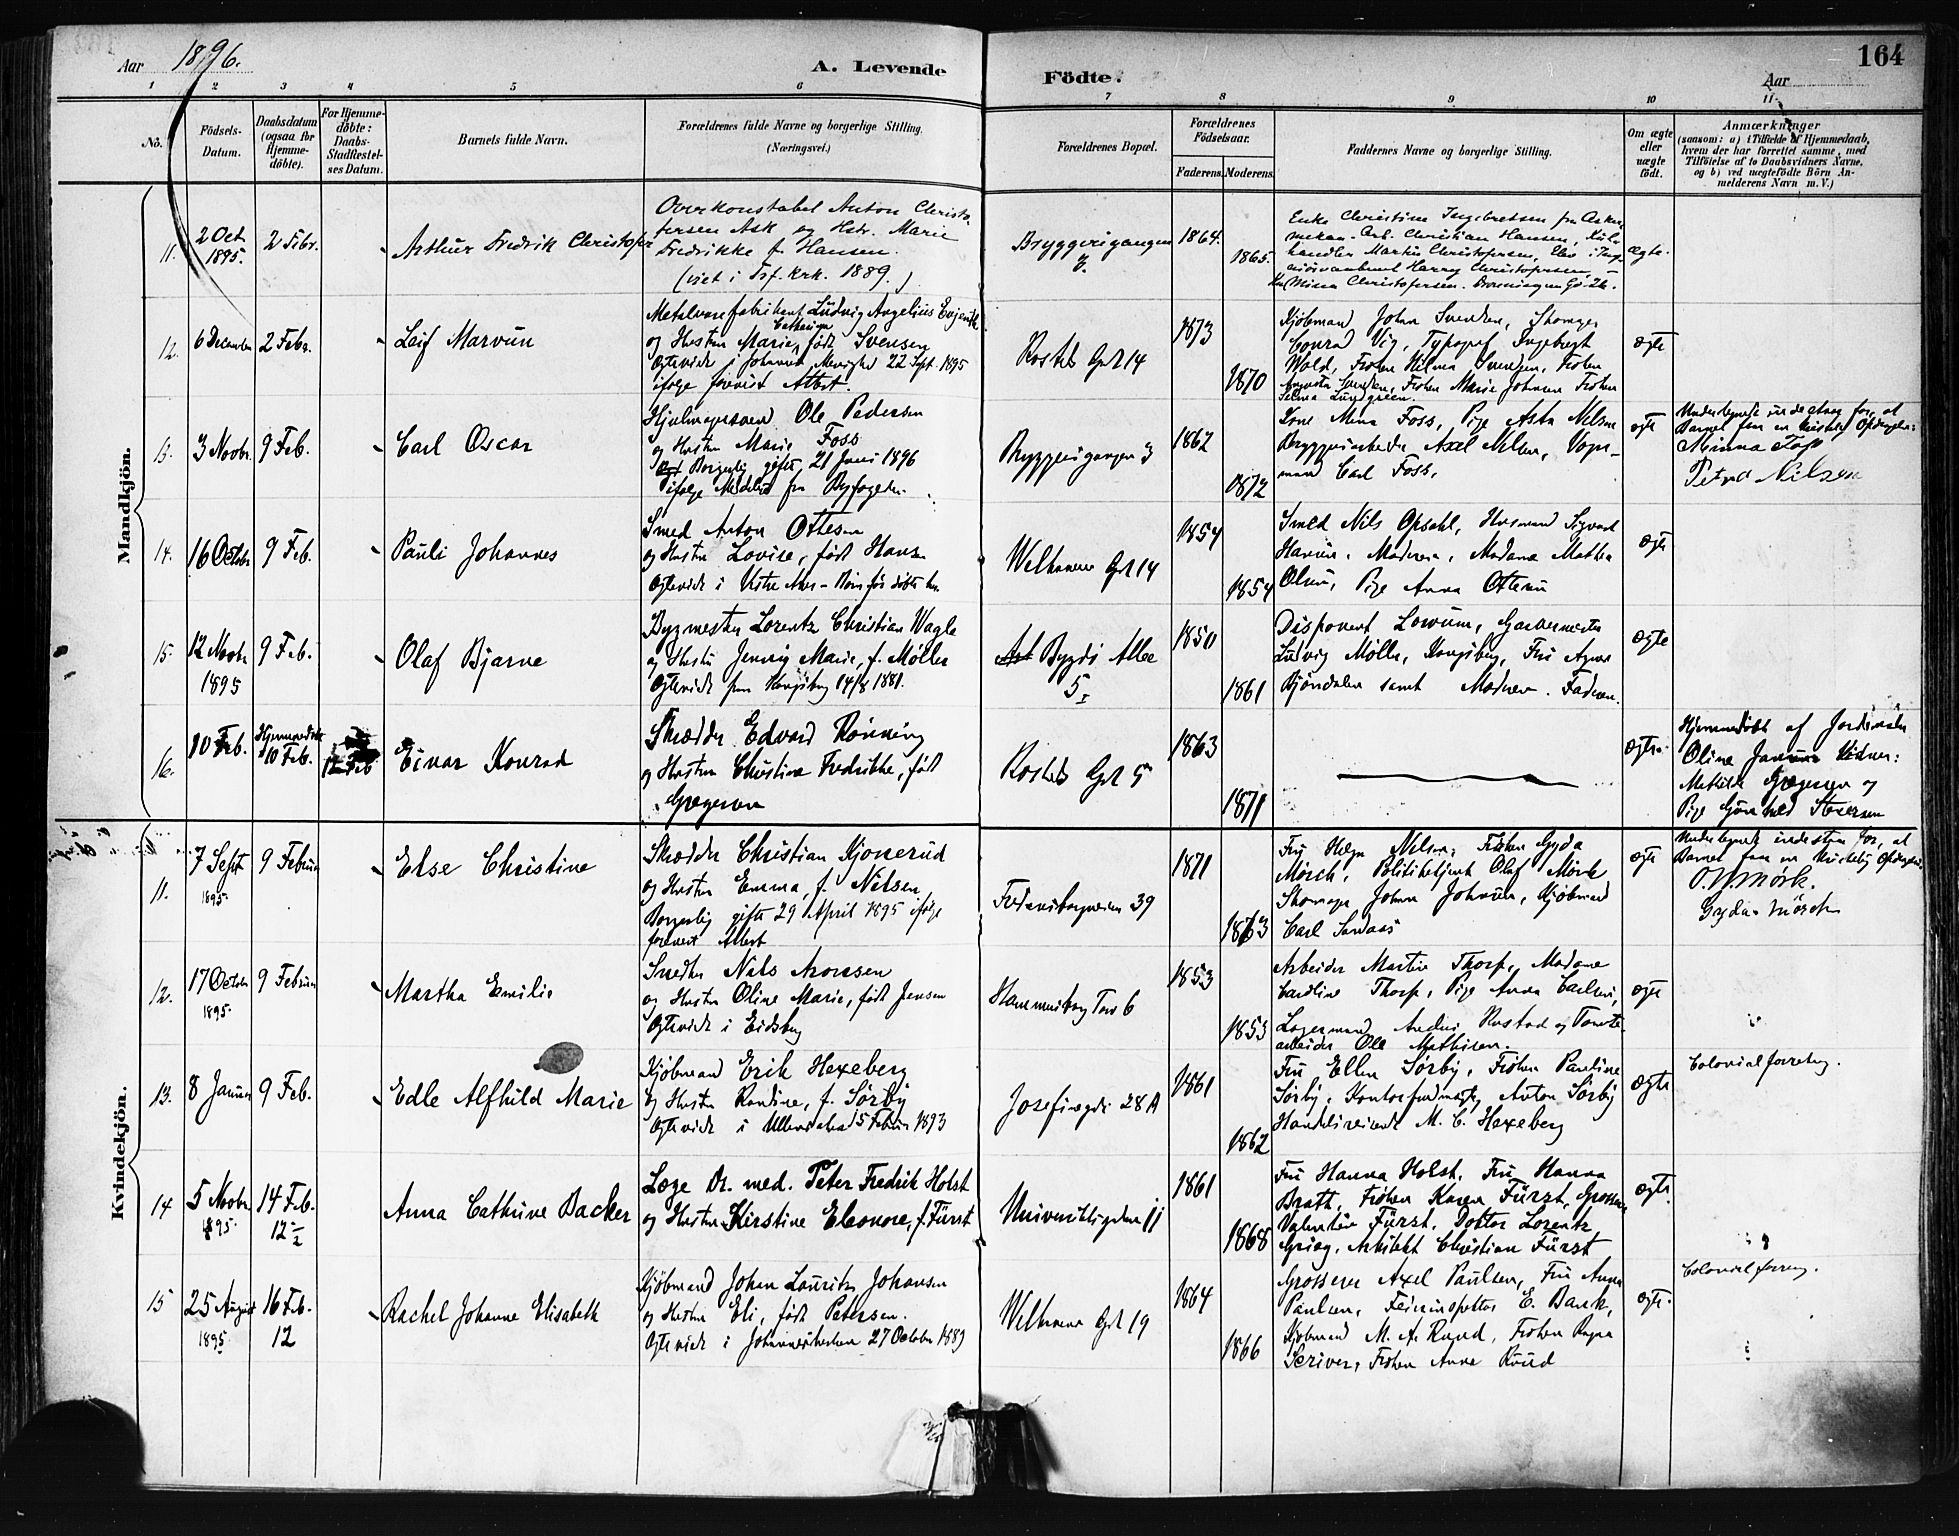 Aar 1896.
A. Levende
Födte.
164
Aar
1 2 3 4 5 6 7 8 9 10 11
No.
Födsels-
Datum.
Daabsdatum
(ogsaa for
Hjemme-
döbte).
For Hjemme-
döbte:
Daabs-
Stadfestel-
ses Datum.
Barnets fulde Navn.
Forældrenes fulde Navne og borgerlige Stilling.
(Næringsvei.)
Forældrenes Bopæl.
Forældrenes
Födselsaar.
Faderens. Moderens.
Faddernes Navne og borgerlige Stilling.
Om ægte
eller
uægte
födt.
Anmærkninger
(saasom: a) i Tilfælde af Hjemmedaab,
hvem der har forrettet samme, med
Tilföielse af to Daabsvidners Navne,
og b) ved uægtefödte Börn An-
melderens Navn m. V.)
Mandkjön.
11.
2 Oct.
1895.
2 Febr.
Arthur Fredrik Christofer
Overkonstabel Anton Christo-
fersen Ask og Hstr. Marie
Fredrikke f. Hansen.
(viet i Trf. Krk. 1889.)
Bryggerigangen
3.
1864.
1865.
Enke Christine Ingebretsen
Arb. Christian Hansen,
handler Martin Christofersen, Elev i
Harry Christofersen,
Minna Christofersen. Dronningens Gd 26.
ægte.
12.
6 December
2 Febr.
Leif Marvin
Metalvarefabrikant Ludvig Angelius
og Hustru Marie Cathrine, født Svensen
Ægteviede i Johannes Menighed 22 Sept. 1895
ifølge forevist Attest.
Rosteds Gd 14
1873
1870
Kjöbmand Johan Svendsen, Skomager
Conrad Vig, Typograf Ingebregt
Wold, Frøken Helma Svendsen, Frøken
Augusta Svendsen, Frøken Marie Johnsen Frøken
Selma Lundgreen.
ægte
13.
3 Novbr.
9 Feb.
Carl Oscar
Ole Pedersen
og Hustru Marie Foss
Borgerlig gifte 21 Juni 1896
ifølge Meddelelse fra Byfogden.
Bryggerigangen 3
1862
1872
Mina Foss, Pige Asta Nilsen
Bryggeriarbeider Axel Nilsen, Vogn-
mand Carl Foss.
ægte
Undertegnede indestaar for, at
Barnet faar en kristelig Opdragelse:
Minna Foss
Petra Nilsen
14.
16 October
9 Feb.
Pauli Johannes
Smed Anton Ottesen
og Hustru Lovise, født Hansen
Ægteviede i Vestre Aker
Welhavens Gd 14
1854
1854
Smed Nils Opsahl, Husmand Sigvart
Hansen, Moderen, Madame Mathea
Olsen, Pige Anna Ottesen
ægte
15.
12 Novbr.
1895
9 Feb.
Olaf Bjarne
Bygmester Lorentz Christian Wagle
og Hustru Jenny Marie, f. Møller
Ægteviede paa Kongsberg 14/8 1881.
Bygdö Allee
5 I
1850
1861
Disponent Lowum, Garvermester
Ludvig Møller, Kongsberg, Fru Agnes
Bjöndalen samt Moderen. Faderen.
ægte
16.
10 Feb.
Hjemmedöbt
10 Feb.
12 Feb
Einar Konrad
Skrædder Edvard Rönning
og Hustru Christine Fredrikke, født
Gregersen
Rosteds Gd 5
1863
1871
ægte.
Hjemmedöbt af Jordemoder
Oline Jansen Vidner:
Mathilde Gregersen og
Pige Gunhild Steversen
Kvindekjön.
11.
7 Sept
1895.
9 Februar
Else Christine
Skrædder Christian Kjonerud
og Hustru Emma, f. Nilsen
Borgerlig gifte 29 April 1895 ifølge
forevist Attest
Fredensborgveien 39
1871
1863
Fru Helga Nilsen, Frøken Gyda
Mörch, Politibetjent Olaf Mörk
Skomager Johan Johnsen, Kjöbmand
Carl Sandaas
ægte
Undertegnede indestaar for, at
Barnet faar en kristelig Opdragelse.
O. N. Mörk.
Gyda Mörch
12.
17 October
1895.
9 Februar
Martha Emilie
Snedker Nils Aronsen
og Hustru Oline Marie, født Jensen
Ægteviede i Eidsberg
Hammersborg Torv 6
1853
1853
Arbeider Martin Thorp, Madame
Caroline Thorp, Pige Anna Carlsen,
Lagermand Anders Rostad og Tomte-
arbeider Ole Mathisen.
ægte
13.
8 Januar
9 Feb.
Edle Alfhild Marie
Kjöbmand Erik Hexeberg
og Hustru Randine, f. Sørby
Ægteviede i Ullensaker 15 Februar 1893
Josefinegde 28 A
1861
1862
Fru Ellen Sørby, Frøken Pauline
Sørby, Kontorfuldmægtig Anton Sørby
Handelsreisende M. C. Hexeberg
ægte
Colonialforretng.
14
5 Novbr
1895.
14 Feb.
12 1/2
Anna Cathrine Backer
Læge Dr. med. Peter Fredrik Holst
og Hustru Kirstine Eleonore, f. Fürst
Universitetsgaden 11
1861
1868
Fru Hanna Holst, Fru Hanna
Bratt, Frøken Karen Fürst, Grosserer
Valentin Fürst, Doktor Lorentz
Grieg, Arkitekt Christian Fürst
ægte
15
25 August
1895
16 Feb.
12
Rachel Johanne Elisabeth
Kjöbmand Johan Lauritz Johansen
og Hustru Eli, født Petersen.
Ægteviede i Johanneskirken 27 October 1889
Welhavens Gd 19
1864
1866
Grosserer Axel Paulsen, Fru Anna
Paulsen, E. Barck,
Kjöbmand M. A. Ruud, Frøken Ragna
Scriver, Frøken Anna Ruud
ægte.
Colonialforretng.